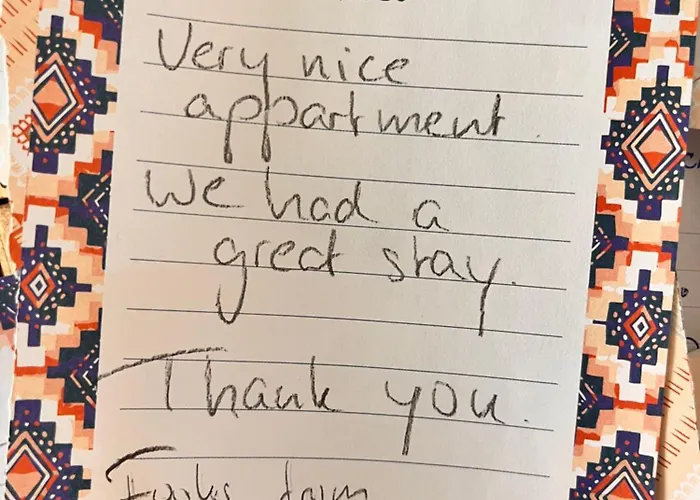 Very nice
appartment.
We had a
great stay.
Thank you.